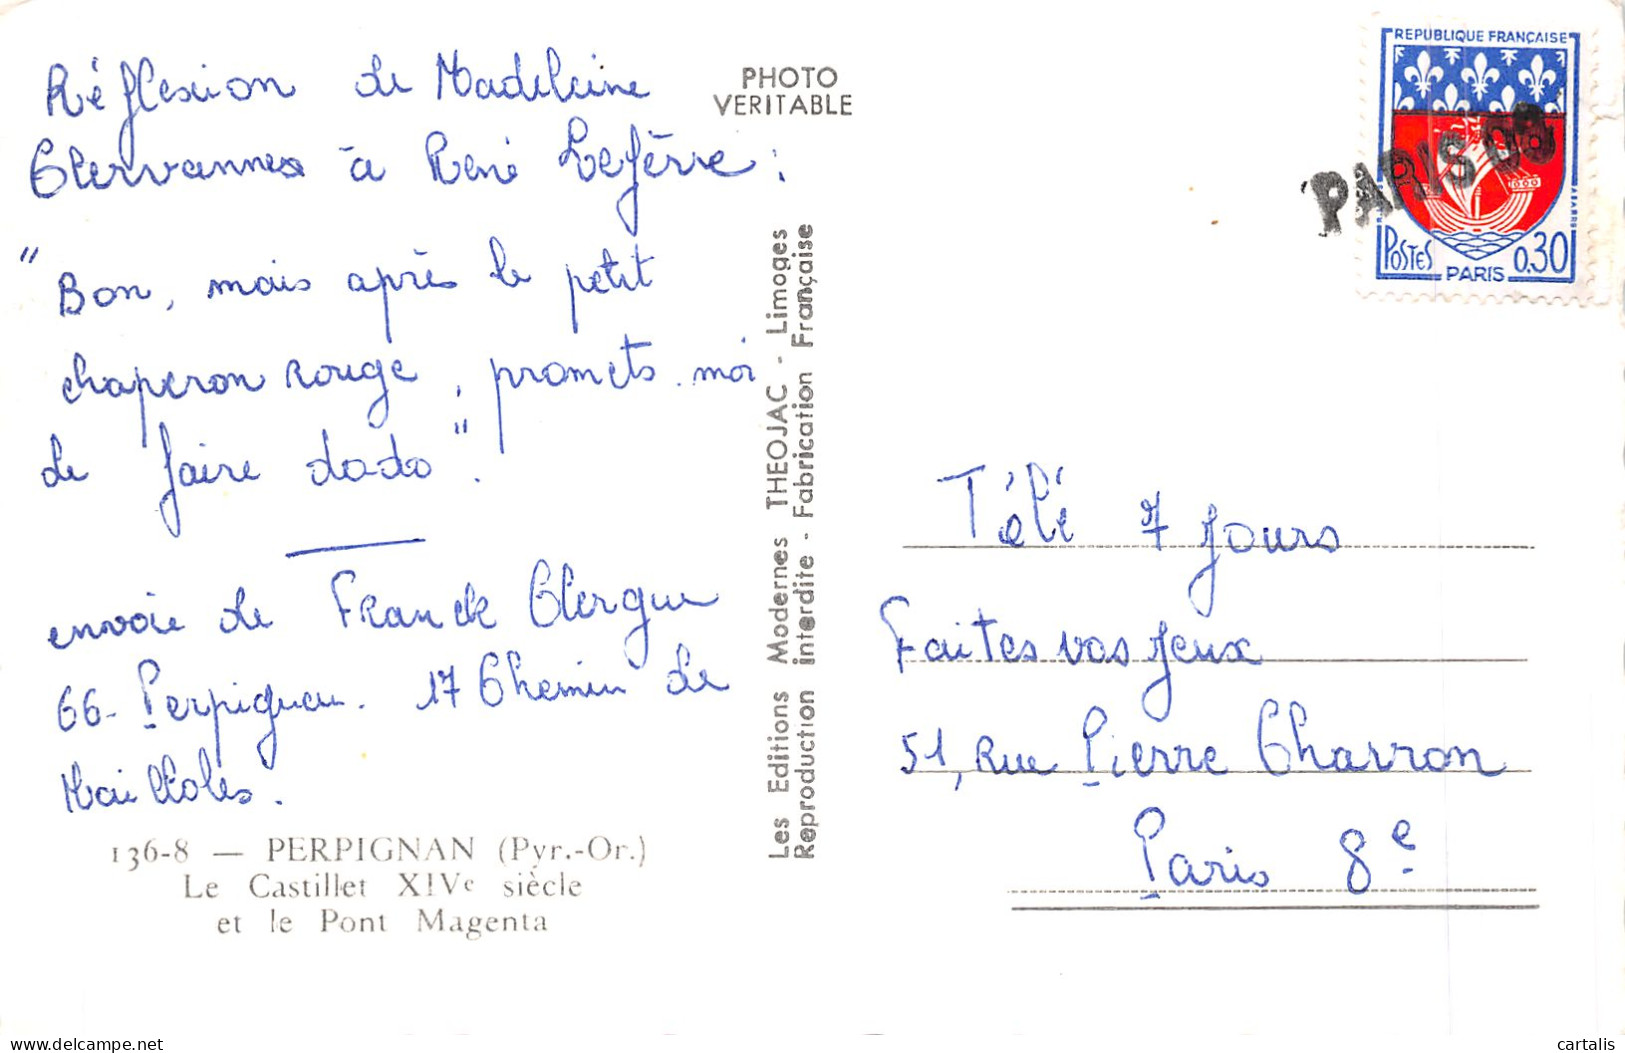 Réflexion de Madeleine
Clervannes à René Lefèvre :
"Bon, mais après le petit
chaperon rouge, promets-moi
de faire dodo".
envoie de Franck Clergue
66- Perpignan. 17 Chemin de
Mailloles.
136-8 — PERPIGNAN (Pyr.-Or.)
Le Castillet XIVe siècle
et le Pont Magenta
PHOTO
VERITABLE
Les Editions Modernes THEOJAC - Limoges
Reproduction interdite - Fabrication Française
REPUBLIQUE FRANÇAISE
POSTES
PARIS
0,30
PARIS 08
Télé 7 Jours
Faites vos jeux
51, Rue Pierre Charron
Paris 8e
delcampe.net
cartalis